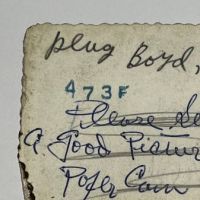 plug Boyd,
473F
Please Se
A Good Pictur
Paper Cam